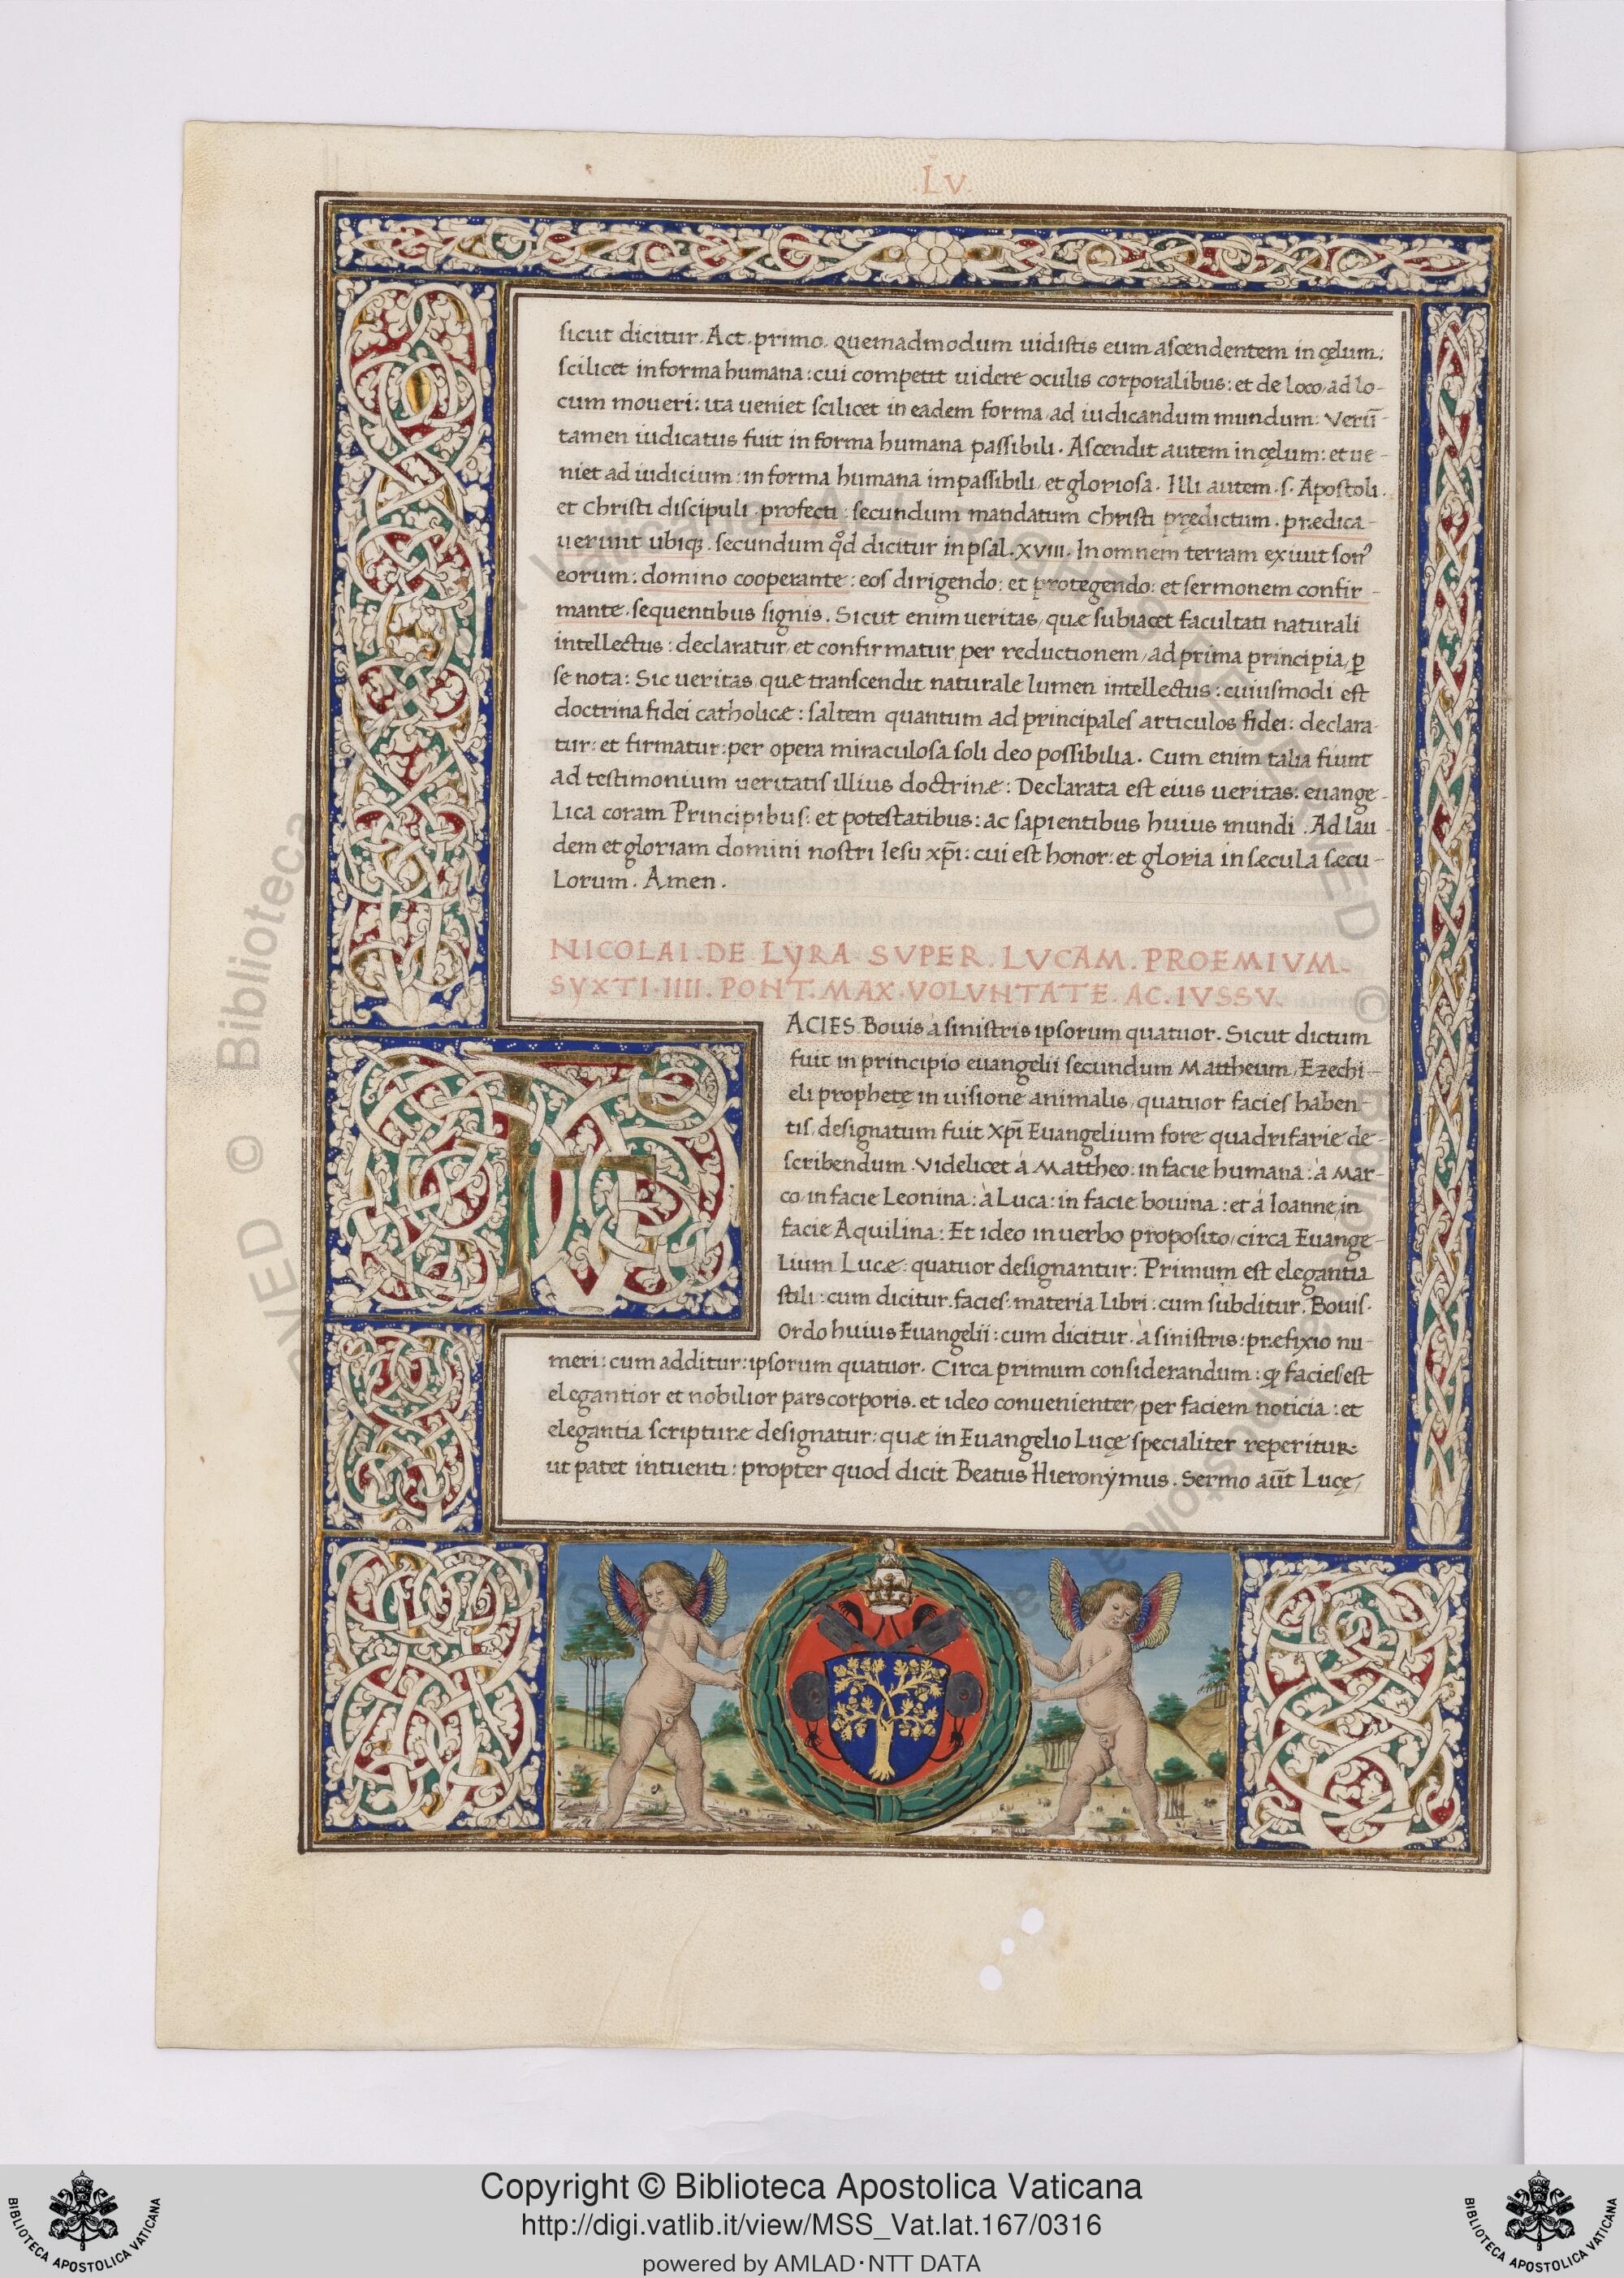 .LV.
sicut dicitur. Act. primo. quemadmodum uidistis eum ascendentem in cęlum:
scilicet in forma humana: cui competit uidere oculis corporalibus: et de loco, ad lo-
cum moueri: ita ueniet scilicet in eadem forma, ad iudicandum mundum: Verū-
tamen iudicatus fuit in forma humana passibili. Ascendit autem in cęlum: et ue-
niet ad iudicium: in forma humana impassibili, et gloriosa. Illi autem .s. Apostoli.
et Christi discipuli. profecti: secundum mandatum Christi prędictum. prædica-
uerunt ubiq;. secundum qd̊ dicitur in psal. xviii. In omnem terram exiuit son9
eorum: domino cooperante: eos dirigendo: et protegendo: et sermonem confir-
mante. sequentibus signis. Sicut enim ueritas, quæ subiacet facultati naturali
intellectus: declaratur, et confirmatur per reductionem, ad prima principia, ꝑ
se nota: Sic ueritas quæ transcendit naturale lumen intellectus: cuiusmodi est
doctrina fidei catholicæ: saltem quantum ad principales articulos fidei: declara-
tur: et firmatur: per opera miraculosa soli deo possibilia. Cum enim talia fiunt
ad testimonium ueritatis illius doctrinæ: Declarata est eius ueritas: euange-
Lica coram Principibus: et potestatibus: ac sapientibus huius mundi. Ad lau-
dem et gloriam domini nostri Iesu xp̄i: cui est honor: et gloria in sæcula sæcu-
Lorum. Amen.
NICOLAI. DE LYRA SVPER. LVCAM. PROEMIVM.
SYXTI. IIII. PONT. MAX. VOLVNTATE. AC. IVSSV.
F
ACIES. Bouis à sinistris ipsorum quatuor. Sicut dictum
fuit in principio euangelii secundum Mattheum, Ezechi-
eli prophetę in uisione animalis, quatuor facies haben
tis, designatum fuit Xp̄i Euangelium fore quadrifarie de-
scribendum. Videlicet á Mattheo: in facie humana: à Mar-
co, in facie Leonina: à Luca: in facie bouina: et á Ioanne, in
facie Aquilina: Et ideo in uerbo proposito, circa Euange-
Lium Lucæ: quatuor designantur: Primum est elegantia
stili: cum dicitur. facies: materia Libri: cum subditur. Bouis.
Ordo huius Euangelii: cum dicitur. à sinistris: præfixio nu-
meri: cum additur: ipsorum quatuor. Circa primum considerandum: ꝙ facies est
elegantior et nobilior pars corporis. et ideo conuenienter, per faciem noticia: et
elegantia scripturæ designatur: quæ in Euangelio Lucę specialiter reperitur:
ut patet intuenti: propter quod dicit Beatus Hieronymus. Sermo aūt Lucę,
Copyright © Biblioteca Apostolica Vaticana
http://digi.vatlib.it/view/MSS_Vat.lat.167/0316
powered by AMLAD·NTT DATA
BIBLIOTECA APOSTOLICA VATICANA
BIBLIOTECA APOSTOLICA VATICANA